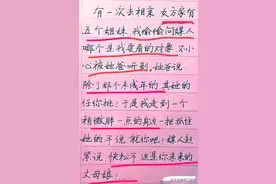 有一次去相亲 女方家有
五个姐妹 我偷偷问媒人
哪个是我要看的对象 不小
心被她爸听到,她爸说:
除了那个未成年的 其她的
任你挑!于是我走到一个
稍微胖一点的身边一把抓住
她的手说 就你吧!媒人赶
紧说:快松手 这是你未来的
丈母娘!...